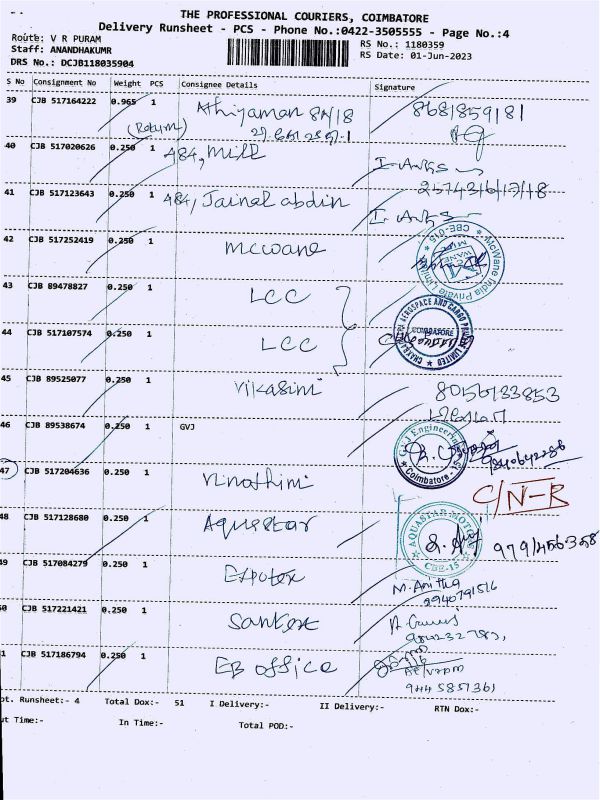 THE PROFESSIONAL COURIERS, COIMBATORE
Delivery Runsheet - PCS - Phone No.:0422-3505555 - Page No.:4
Route: V R PURAM
Staff: ANANDHAKUMR
DRS No.: DCJB118035904
RS No.: 1180359
RS Date: 01-Jun-2023
S No Consignment No Weight PCS Consignee Details Signature
39 CJB 517164222 0.965 1 Athiyaman 8A/18 8681859181
(Return)
40 CJB 517020626 0.250 1 484, Mill
41 CJB 517123643 0.250 1 484, Jainal abdin 257431/6/17/18
42 CJB 517252419 0.250 1 mcwane
McWane India Private Limited * CBE-016 *
43 CJB 89478827 0.250 1 LCC
AEROSPACE AND CARGO PRIVATE LIMITED
COIMBATORE
44 CJB 517107574 0.250 1 LCC
45 CJB 89525077 0.250 1 Vikasini 8056133853
46 CJB 89538674 0.250 1 GVJ
GVJ Engineering
* Coimbatore - 15 *
9840642286
47 CJB 517204636 0.250 1 Vinothini C/N-R
48 CJB 517128680 0.250 1 Aquastar
AQUASTAR MOTORS
* CBE-15 *
979/456358
49 CJB 517084279 0.250 1 Expotex M. Anitha
2940791516
50 CJB 517221421 0.250 1 Santex
51 CJB 517186794 0.250 1 EB office
944 5857361
ot. Runsheet:- 4 Total Dox:- 51 I Delivery:- II Delivery:- RTN Dox:-
ut Time:- In Time:- Total POD:-